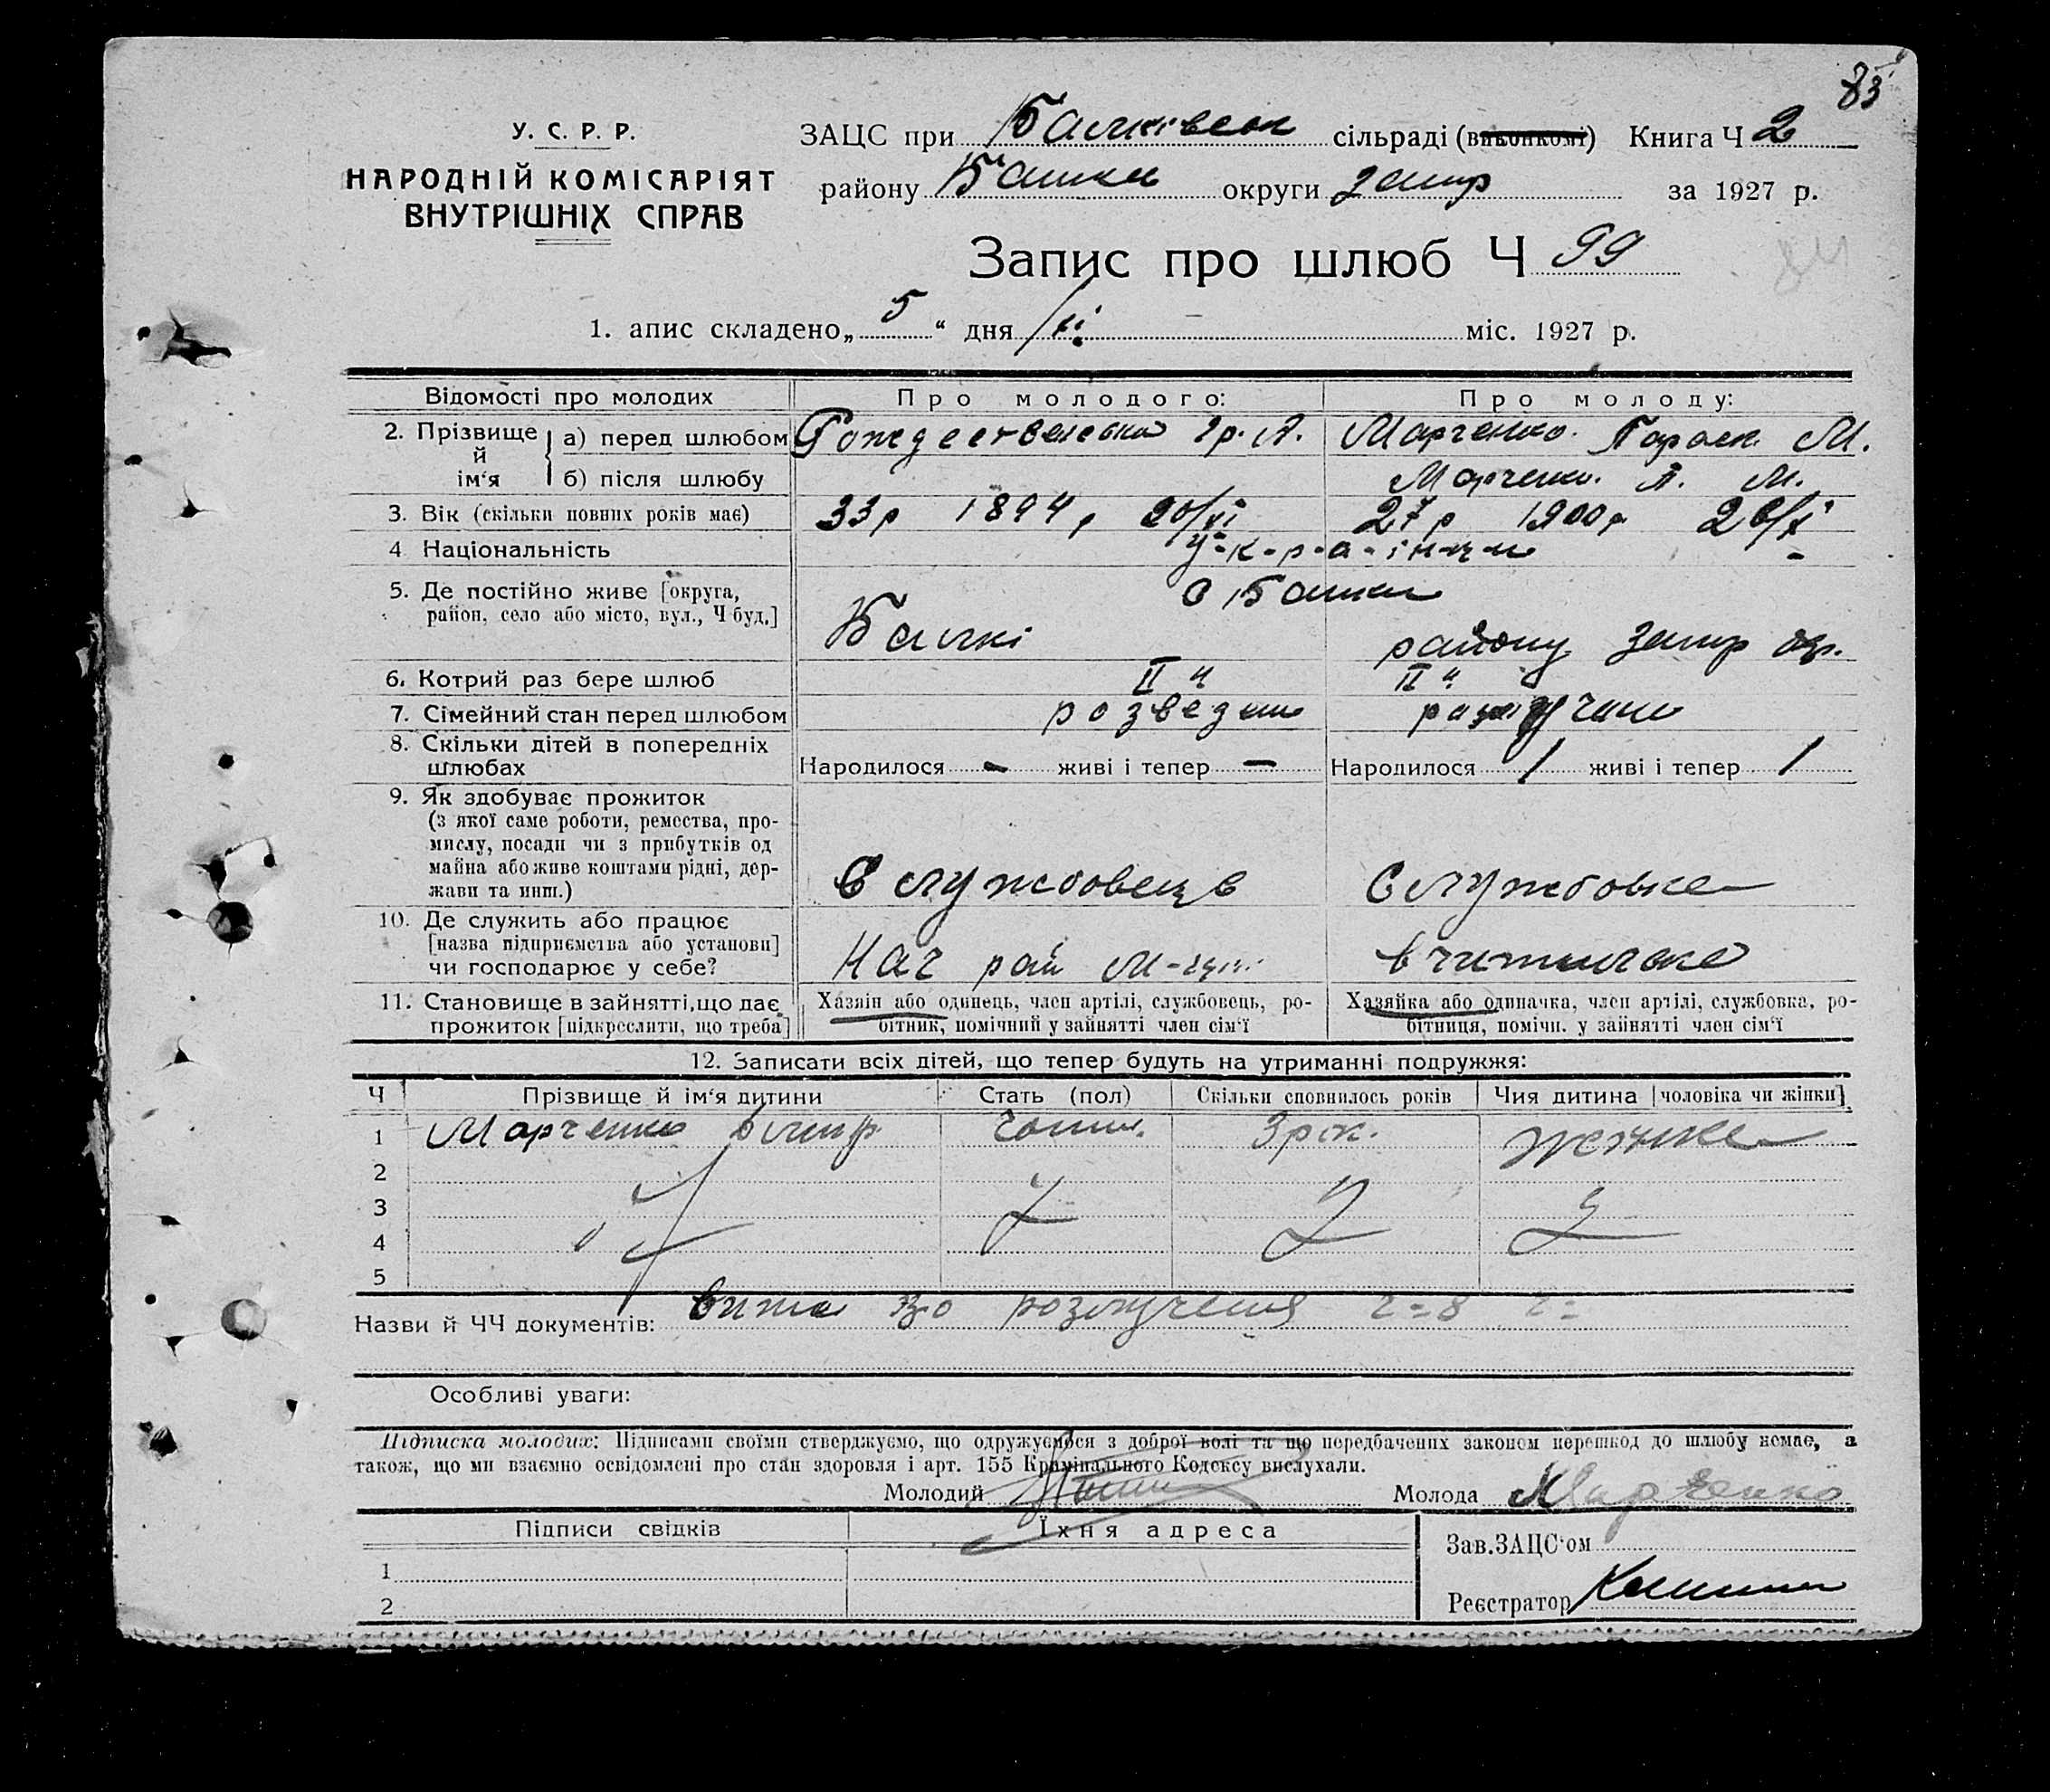 83
У. С. Р. Р.
НАРОДНІЙ КОМІСАРІЯТ
ВНУТРІШНІХ СПРАВ
ЗАЦС при Балківськ сільраді (виконкомі) Книга Ч 2
району Балки округи Запр за 1927 р.
Запис про шлюб Ч 99
84
1. апис складено „ 5 “ дня міс. 1927 р.
Відомості про молодих
Про молодого:
Про молоду:
2. Прізвище й ім‘я
а) перед шлюбом
Гр. А.
Марченко. Параск. М.
б) після шлюбу
Марченко. П. М.
3. Вік (скільки повних років має)
33 р 1894 р 20/VI
27 р 1900 р
4. Національність
у-к-р-а-їн-ц-и
5. Де постійно живе [округа,
район, село або місто, вул., Ч буд.]
с Балки
Балкі
району Запр окр.
6. Котрий раз бере шлюб
II й
II й
7. Сімейний стан перед шлюбом
розведен
8. Скільки дітей в попередніх
шлюбах
Народилося - живі і тепер —
Народилося 1 живі і тепер 1
9. Як здобуває прожиток
(з якої саме роботи, ремества, про-
мислу, посади чи з прибутків од
майна або живе коштами рідні, дер-
жави та инш.)
Службовець
Службовка
10. Де служить або працює
[назва підприємства або установи]
чи господарює у себе?
Нач рай
вчителька
11. Становище в зайнятті, що дає
прожиток [підкреслити, що треба]
Хазяін або одинець, член артілі, службовець, ро-
бітник, помічний у зайнятті член сім‘ї
Хазяйка або одиначка, член артілі, службовка, ро-
бітниця, помічн. у зайнятті член сім‘ї
12. Записати всіх дітей, що тепер будуть на утриманні подружжя:
Ч
Прізвище й ім‘я дитини
Стать (пол)
Скільки сповнилось років
Чия дитина [чоловіка чи жінки]
1
Марченко
3 рок.
жінки
2
3
4
5
Назви й ЧЧ документів: розлучення
Особливі уваги:
Підписка молодих: Підписами своїми стверджуємо, що одружуємося з доброї волі та що передбачених законом перешкод до шлюбу немає, а
також, що ми взаємно освідомлені про стан здоровля і арт. 155 Кримінального Кодексу вислухали.
Молодий
Молода Марченко
Підписи свідків
Їхня адреса
Зав. ЗАЦС‘ом
1
2
Реєстратор